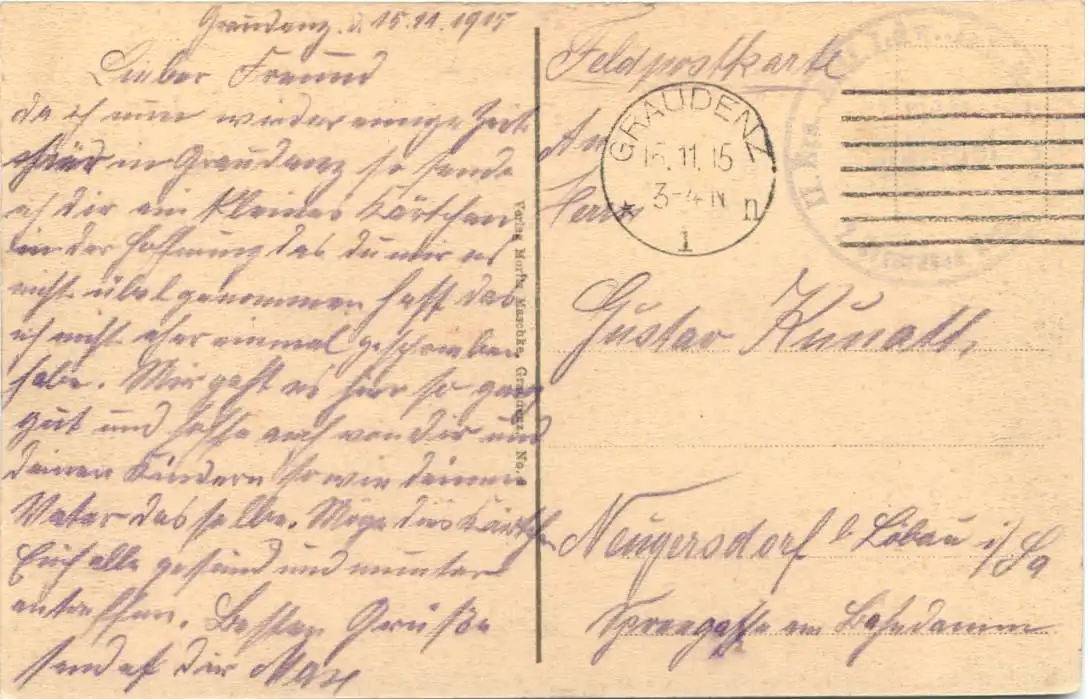 Graudenz. d. 15.11.1915
Lieber Freund
da ich nun wieder einige Zeit
hier in Graudenz so sende
ich dir ein kleines Kärtchen
in der Hoffnung das du mir es
nicht übel genommen hast das
ich nicht eher einmal geschrieben
habe. Mir geht es hier so ganz
gut und hoffe auch von dir und
deinen Kindern sowie deinem
Vater dasselbe. Möge dies Kärtchen
Euch alle gesund und munter
antreffen. Besten Grüße
sendet dir Max
Verlag Moritz Maschke, Graudenz. No.
Feldpostkarte
An
Herrn
Gustav Kunath,
Neugersdorf b Löbau i/Sa
Spreegasse am Bahndamm
GRAUDENZ
15.11.15
3-4 N
* 1 n
II. Ers.